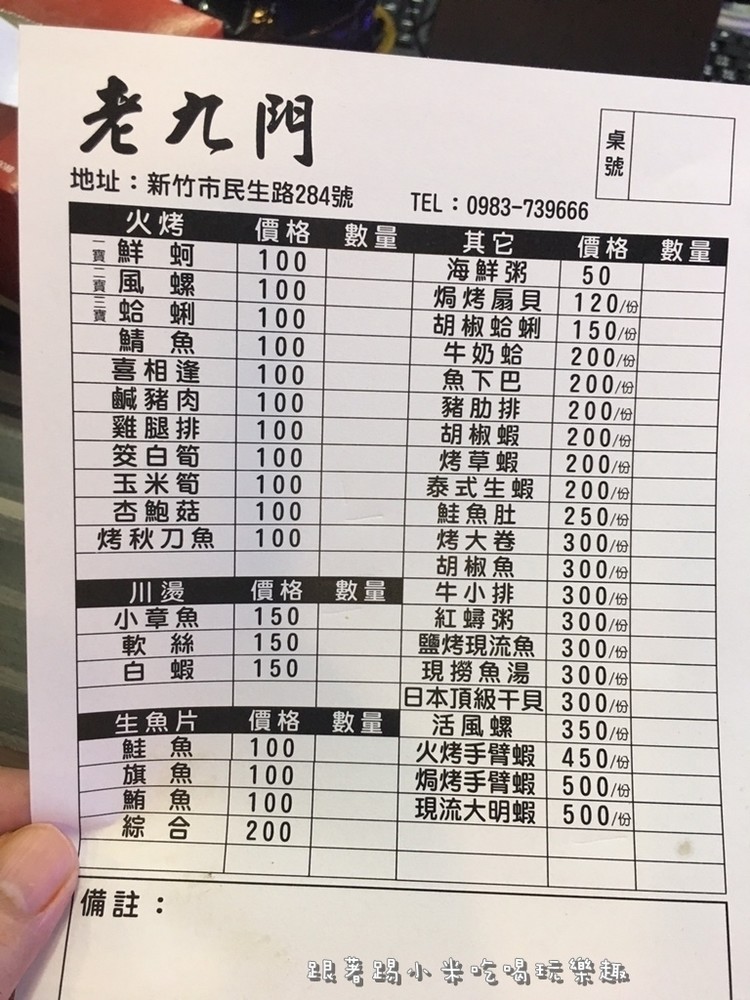 老九門
桌號
地址：新竹市民生路284號 TEL：0983-739666
火烤 價格 數量
一寶 鮮蚵 100
二寶 風螺 100
三寶 蛤蜊 100
鯖魚 100
喜相逢 100
鹹豬肉 100
雞腿排 100
筊白筍 100
玉米筍 100
杏鮑菇 100
烤秋刀魚 100
川燙 價格 數量
小章魚 150
軟絲 150
白蝦 150
生魚片 價格 數量
鮭魚 100
旗魚 100
鮪魚 100
綜合 200
其它 價格 數量
海鮮粥 50
焗烤扇貝 120/份
胡椒蛤蜊 150/份
牛奶蛤 200/份
魚下巴 200/份
豬肋排 200/份
胡椒蝦 200/份
烤草蝦 200/份
泰式生蝦 200/份
鮭魚肚 250/份
烤大卷 300/份
胡椒魚 300/份
牛小排 300/份
紅蟳粥 300/份
鹽烤現流魚 300/份
現撈魚湯 300/份
日本頂級干貝 300/份
活風螺 350/份
火烤手臂蝦 450/份
焗烤手臂蝦 500/份
現流大明蝦 500/份
備註：
跟著踢小米吃喝玩樂趣